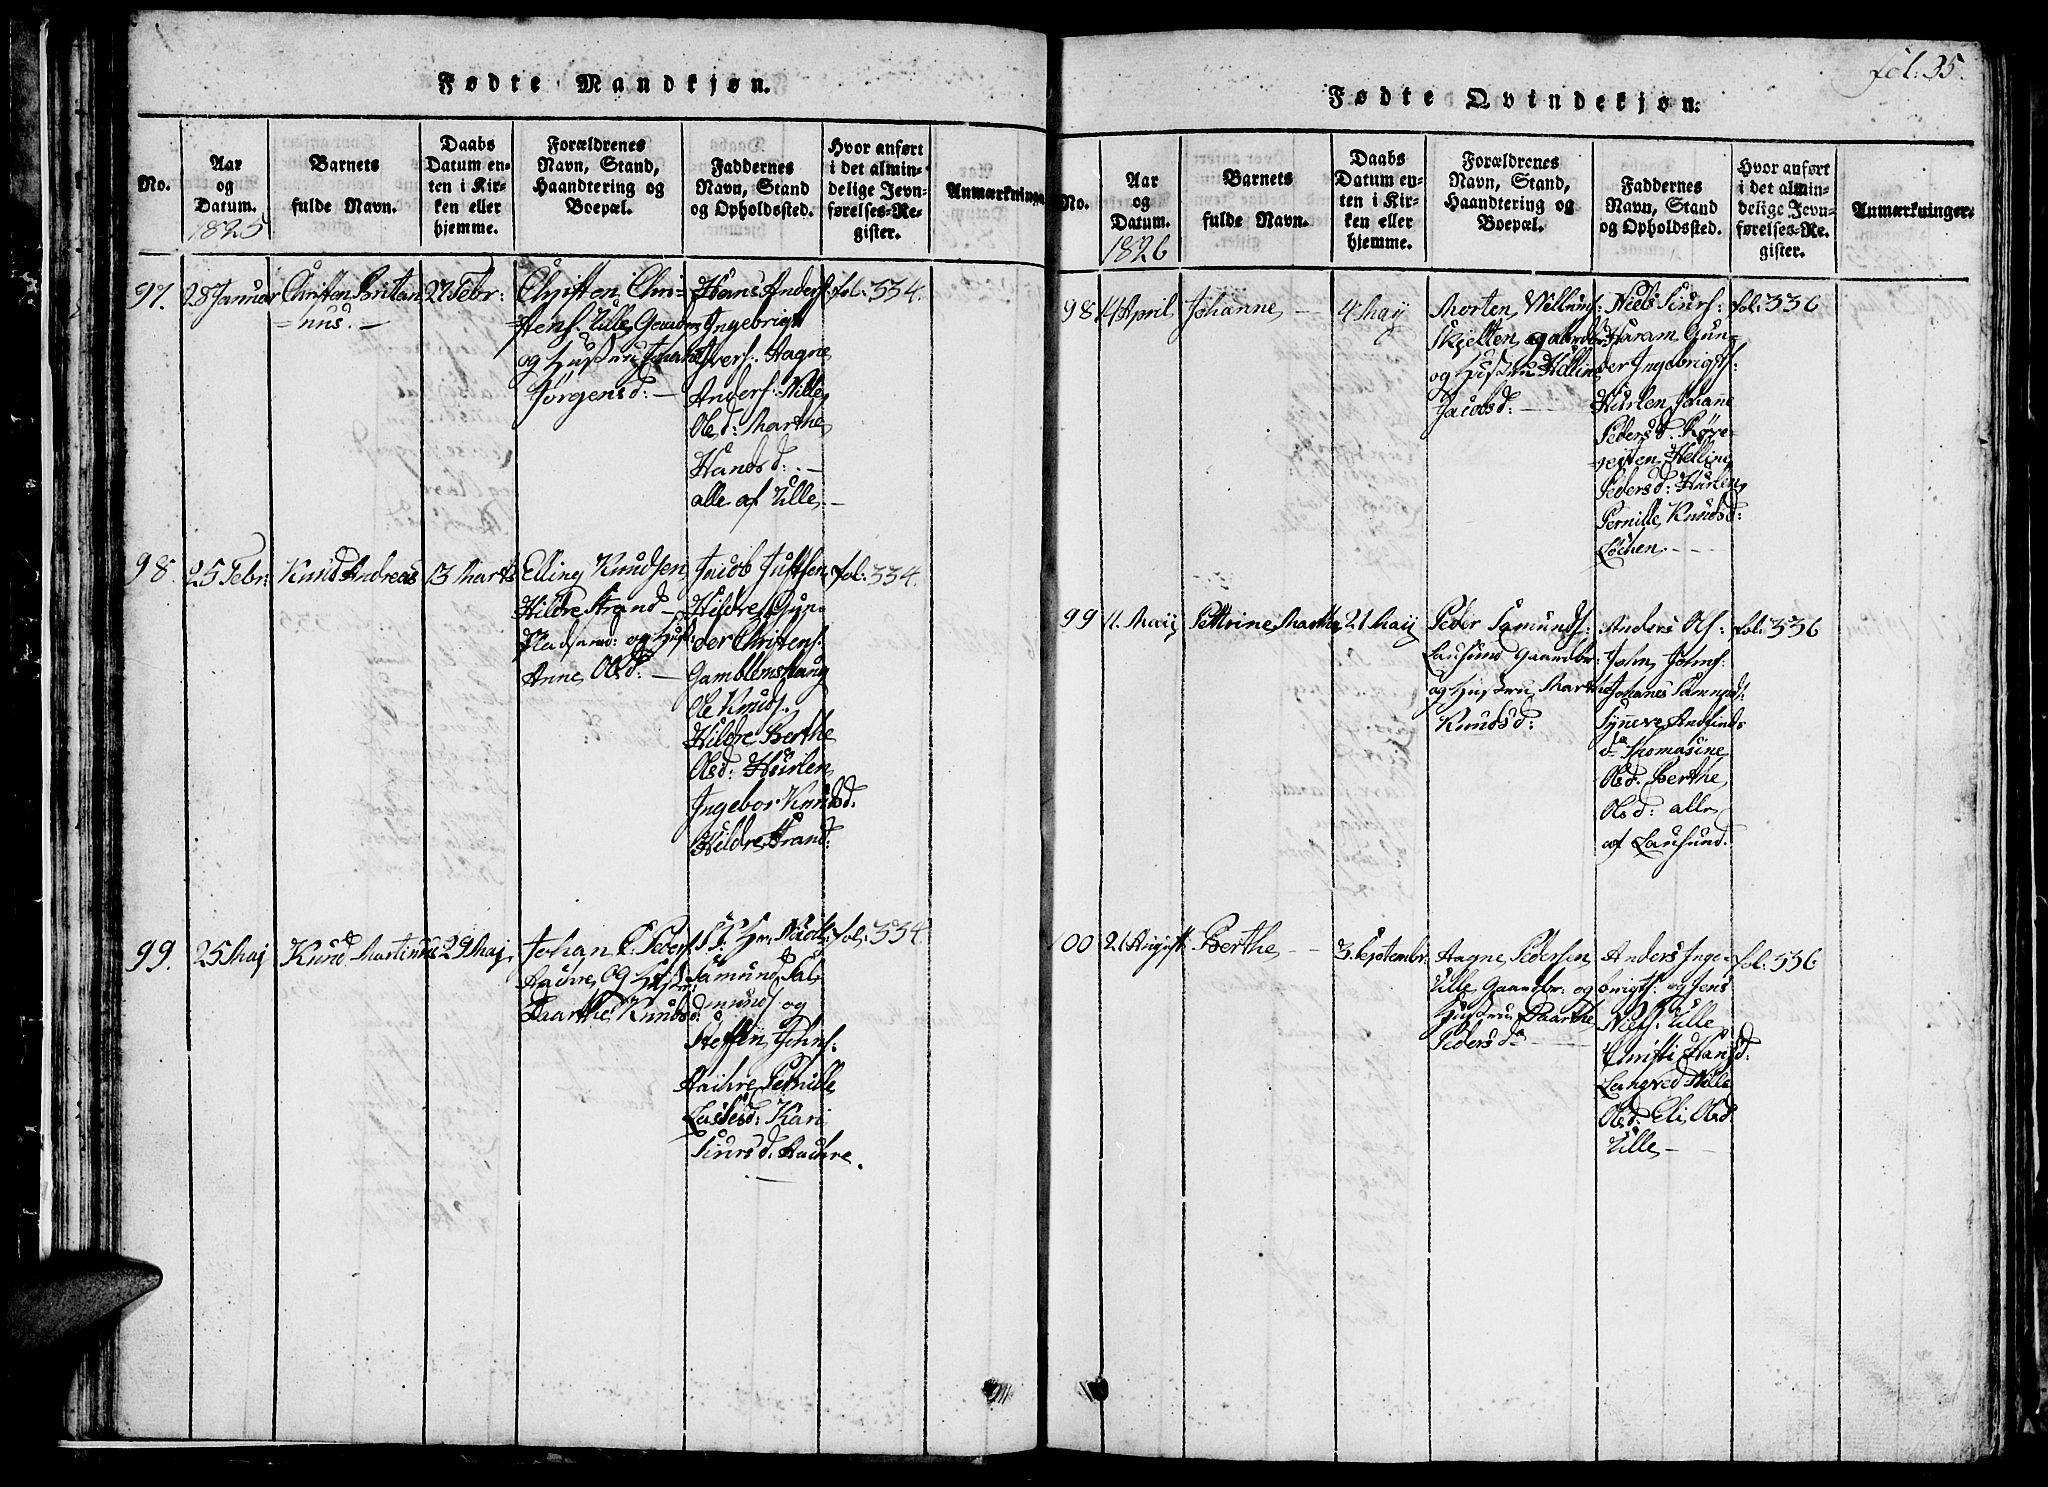 Fødte Mandkjøn.
No.
Aar
og
Datum.
1825
Barnets
fulde Navn.
Daabs
Datum en-
ten i Kir-
ken eller
hjemme.
Forældrenes
Navn, Stand,
Haandtering og
Boepæl.
Faddernes
Navn, Stand
og Opholdssted.
Hvor anført
i det almin-
delige Jevn-
førelses-Re-
gister.
Anmærkninge
97.
28 Januar
Christen
=nus. —
27 Febr:
Christen Chri=
=stens. Ulle Gaardm
og Hustru
Jørgensd: —
Hans Anders:
Ingebrigt
Ivers. Aagne
Anders: Nille
Olsd: Marthe
Hansd: . —
alle af Ulle —
fol: 334.
98.
25 Febr:
Knud Andreas
13 Marts
Elling Knudsen
Hildre Strand —
og Hust:
Anne Olsd: —
Jacob Justsen
Hildre, Gun-
der Christens.
Gamblemshaug
Ole Knuds.
Hildre Berthe
Olsd: Hurlen
Ingebor Knudsd:
Hildre Strand:
fol: 334.
99.
25 Maj
Knud Martinus
29 Maj
Johan P. Peders.
og Hustr:
Maarthe Knudsd:
Samund Sal-
munds og
Steffen Johns:
Pernille
Lassesd: Kari
Siursd:
fol: 334.
fol: 35.
Fødte Qvindekjøn:
No.
Aar
og
Datum.
1826
Barnets
fulde Navn.
Daabs
Datum en-
ten i Kir-
ken eller
hjemme.
Forældrenes
Navn, Stand,
Haandtering og
Boepæl.
Faddernes
Navn, Stand
og Opholdssted.
Hvor anført
i det almin-
delige Jevn-
førelses-Re-
gister.
Anmærkninger:
98
14 April
Johanne —
4 May
Morten
Skjelten gaardbr:
og Hustru Helline
Jacobsd: —
Niels Siurs:
Haram Gun-
der Ingebrigts:
Hurlen Johane
Pedersd. Røve-
Helline
Pedersd: Hurlen
Pernille Knudsd:
Løchen. —
fol: 336
99
11. Maij
Pettrine Marthe
21 Maij
Peder Samunds:
Lausund Gaardbr:
og Hustru Marthe
Knudsd:
Anders Ols:
John Johns:
Johanes Samunds:
Synneve Andfinds
da Thomasine
Olsd: Berthe
Olsd: alle
af Lausund:
fol: 336
100
21 August
Berthe —
3 September
Aagne Pedersen
Ulle Gaardbr: og
Hustru Maarthe
Pedersda —
Anders Inge-
brigts: og Jens
Niels: Ulle
Christi Hansd:
Longved Nille
Olsd: Eli Olsd
Ulle —
fol: 336